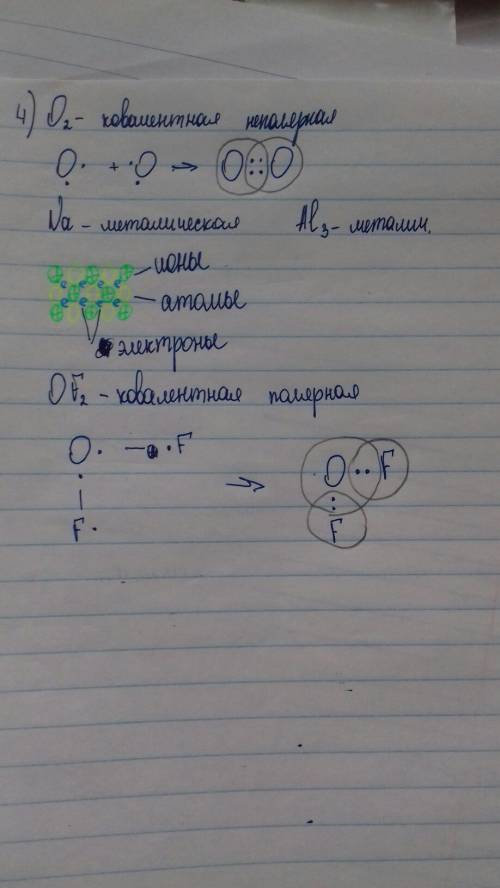 4) O₂ - ковалентная неполярная
O· + ·O → O::O
Na - металическая Al₃ - металич.
ионы
атомы
электроны
OF₂ - ковалентная полярная
O· — ·F → O ·· F
F· F